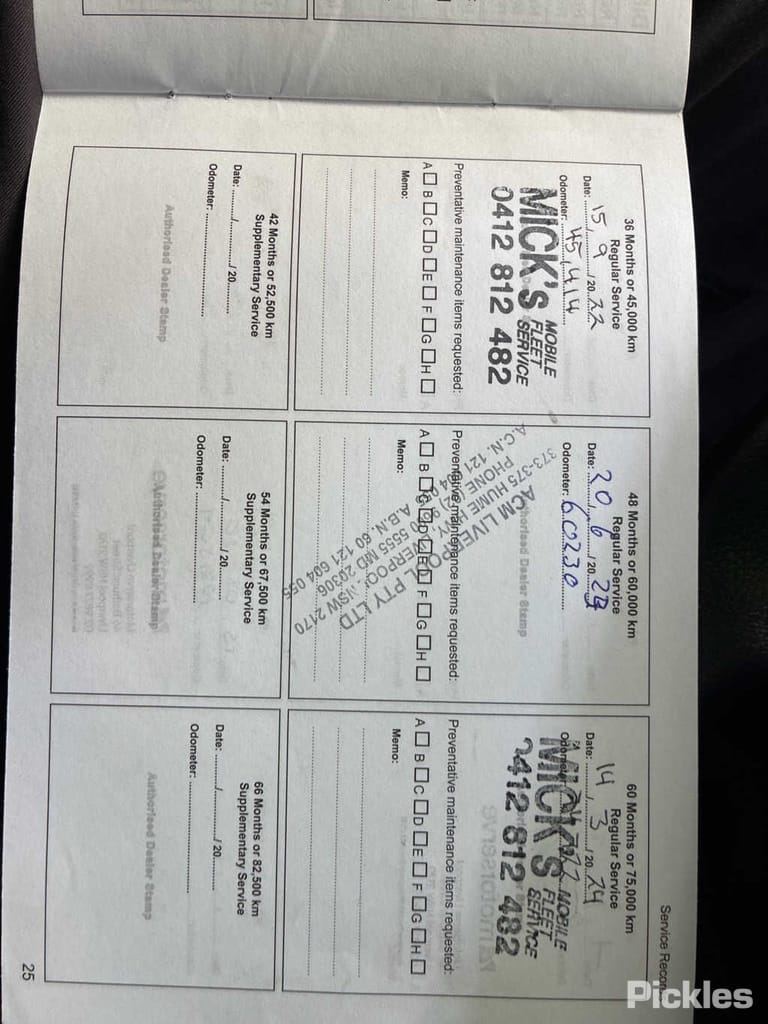 Service Recor
36 Months or 45,000 km
Regular Service
Date: 15 / 9 / 20 22
Odometer: 45,414
MICK's MOBILE
FLEET
SERVICE
0412 812 482
Preventative maintenance items requested:
A □ B □ C □ D □ E □ F □ G □ H □
Memo:
48 Months or 60,000 km
Regular Service
Date: 20 / 6 / 20
Odometer: 60230
Authorised Dealer Stamp
ACM LIVERPOOL PTY LTD
373-375 HUME HWY LIVERPOOL NSW 2170
A.B.N. 60 121 604 055
A.C.N. 121
Preventative maintenance items requested:
A □ B □ C □ D □ E □ F □ G □ H □
Memo:
60 Months or 75,000 km
Regular Service
Date: 14 / 3 / 20 24
Odometer:
MICK's MOBILE
FLEET
SERVICE
0412 812 482
Preventative maintenance items requested:
A □ B □ C □ D □ E □ F □ G □ H □
Memo:
42 Months or 52,500 km
Supplementary Service
Date: ......../............/ 20..........
Odometer: ..............................
Authorised Dealer Stamp
54 Months or 67,500 km
Supplementary Service
Date: ......../............/ 20..........
Odometer: ..............................
Authorised Dealer Stamp
66 Months or 82,500 km
Supplementary Service
Date: ......../............/ 20..........
Odometer: ..............................
Authorised Dealer Stamp
25
Pickles